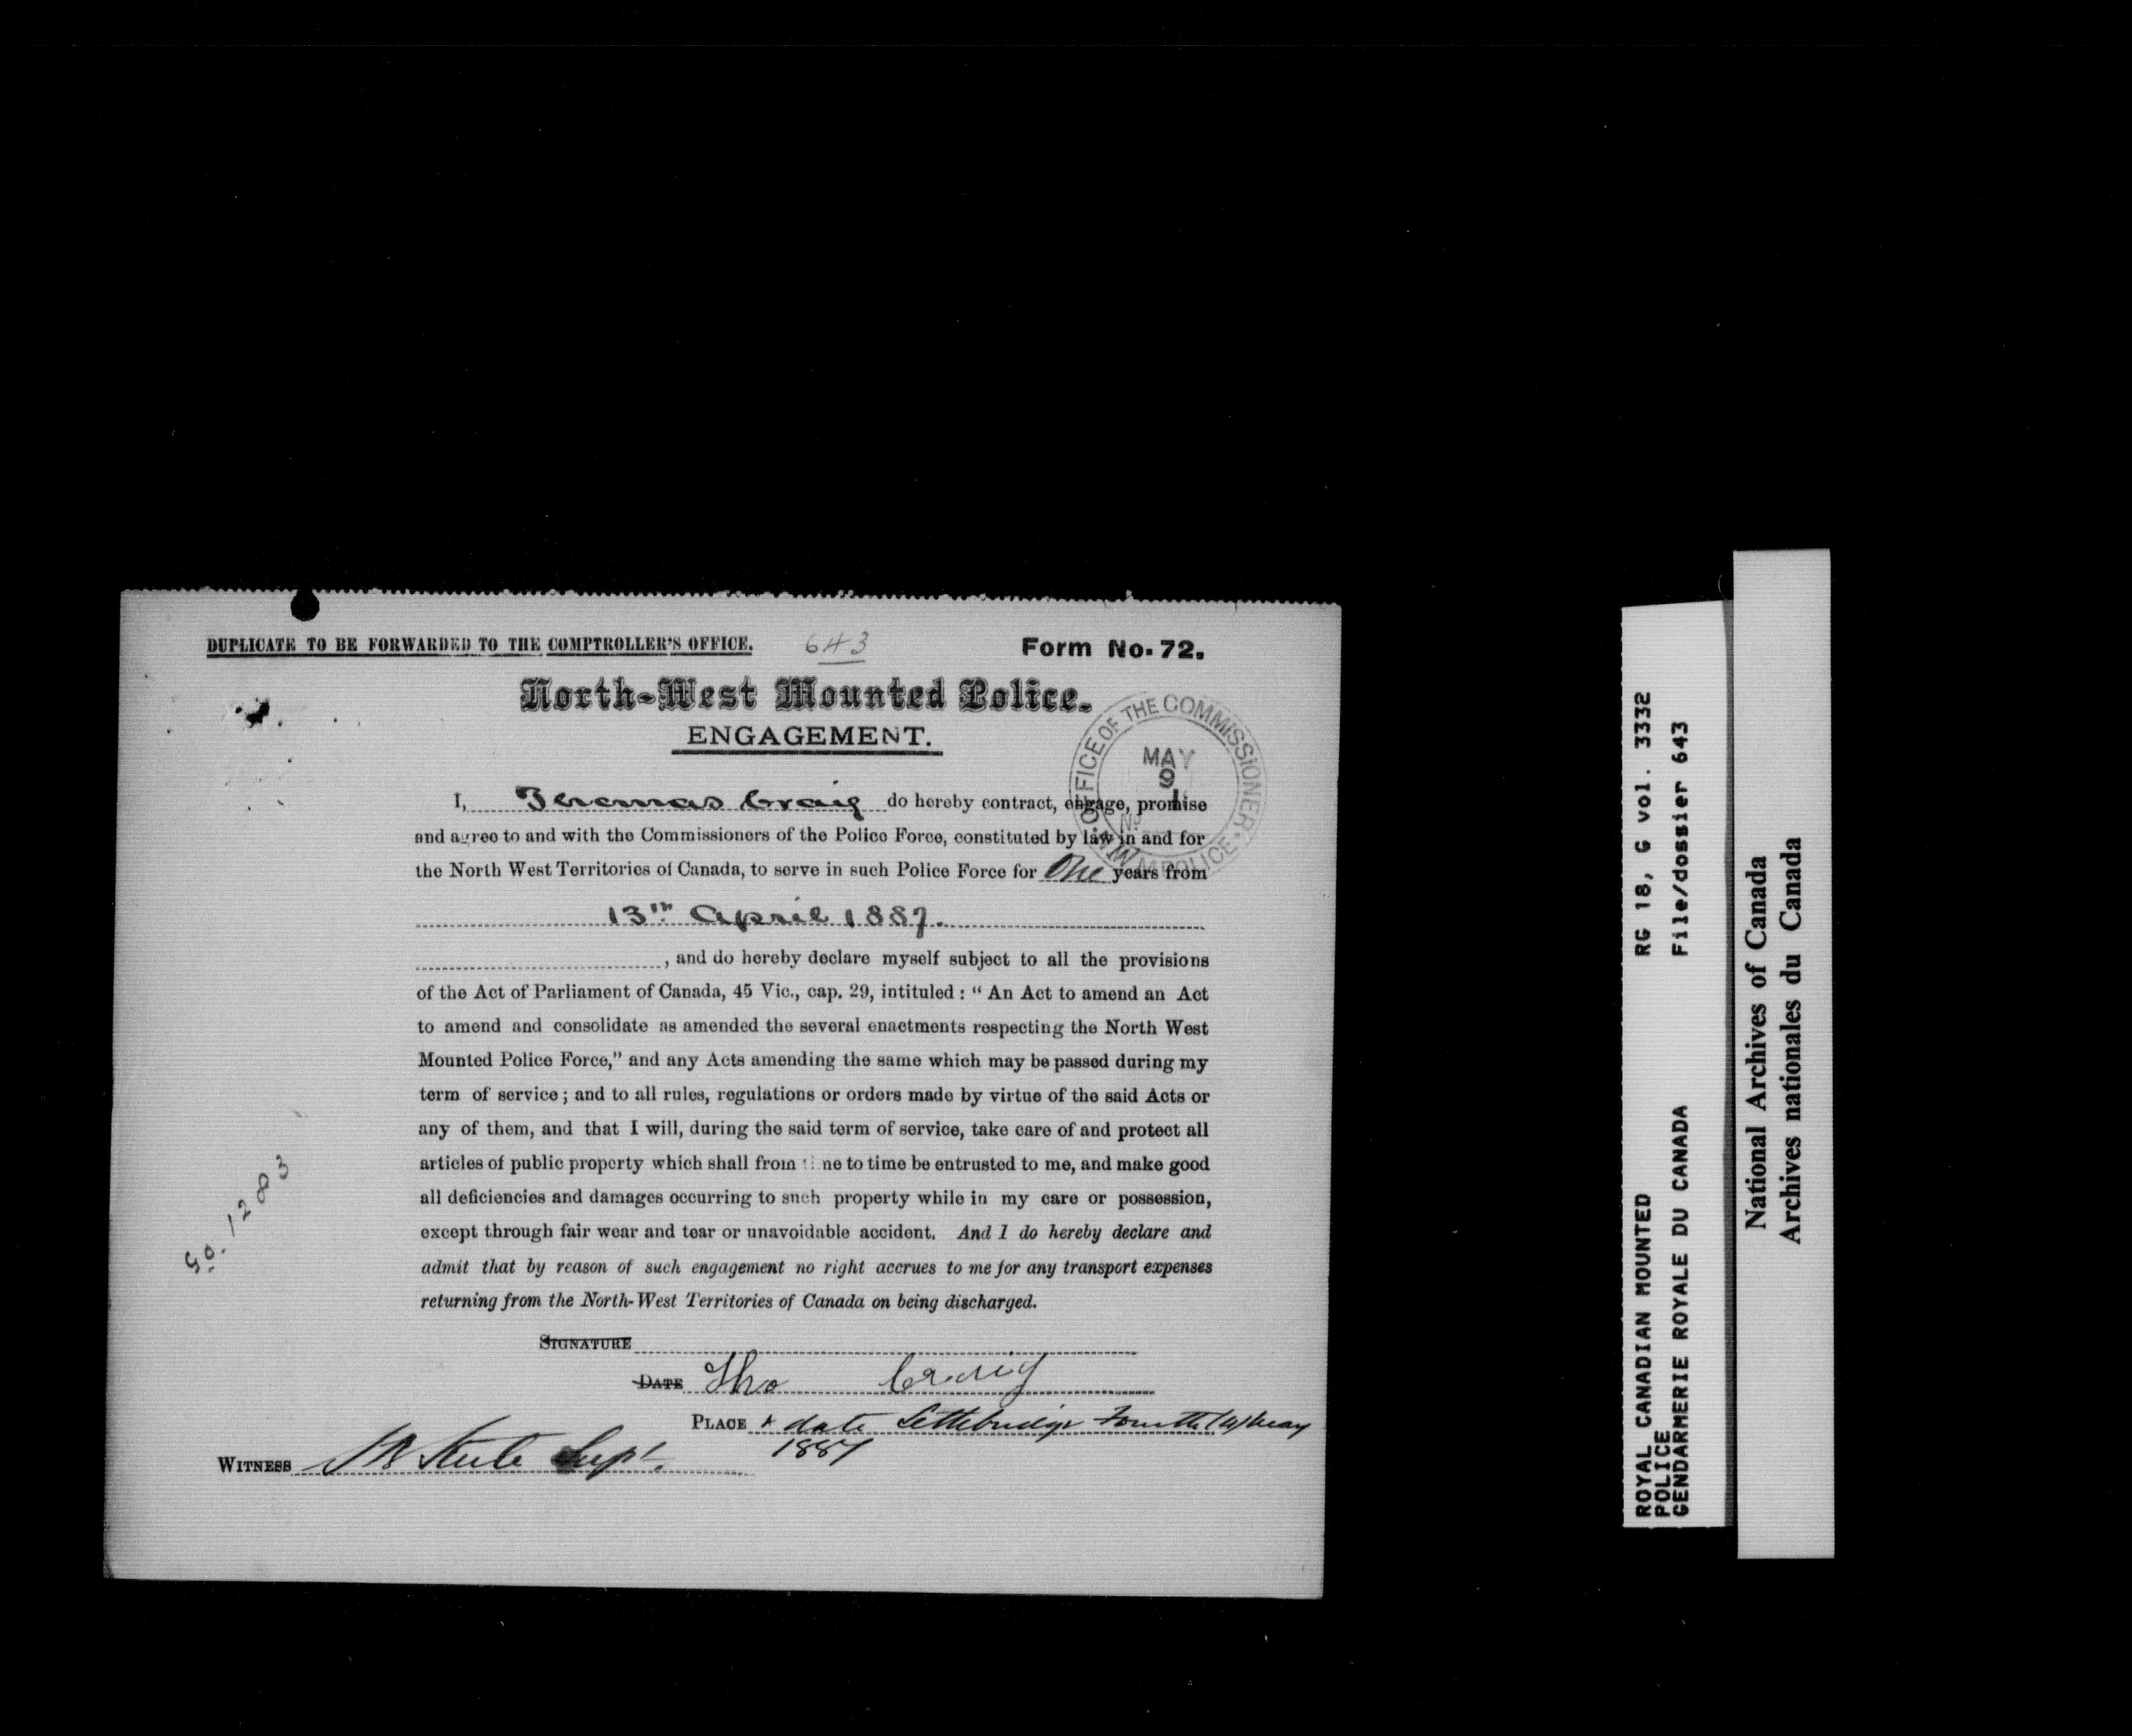 DUPLICATE TO BE FORWARDED TO THE COMPTROLLER'S OFFICE. 643 Form No. 72.
North-West Mounted Police.
ENGAGEMENT.
OFFICE OF THE COMMISSIONER
MAY
9
No
POLICE
I, Thomas Craig do hereby contract, engage, promise
and agree to and with the Commissioners of the Police Force, constituted by law in and for
the North West Territories of Canada, to serve in such Police Force for One years from
13th April 1887.
, and do hereby declare myself subject to all the provisions
of the Act of Parliament of Canada, 45 Vic., cap. 29, intituled : " An Act to amend an Act
to amend and consolidate as amended the several enactments respecting the North West
Mounted Police Force," and any Acts amending the same which may be passed during my
term of service ; and to all rules, regulations or orders made by virtue of the said Acts or
any of them, and that I will, during the said term of service, take care of and protect all
articles of public property which shall from time to time be entrusted to me, and make good
all deficiencies and damages occurring to such property while in my care or possession,
except through fair wear and tear or unavoidable accident. And I do hereby declare and
admit that by reason of such engagement no right accrues to me for any transport expenses
returning from the North-West Territories of Canada on being discharged.
SIGNATURE
DATE Tho Craig
PLACE & date Lethbridge Fourth (4) May
1887
WITNESS Steele Supt.
G.O. 1283
ROYAL CANADIAN MOUNTED RG 18, G vol. 3332
POLICE
GENDARMERIE ROYALE DU CANADA File/dossier 643
National Archives of Canada
Archives nationales du Canada